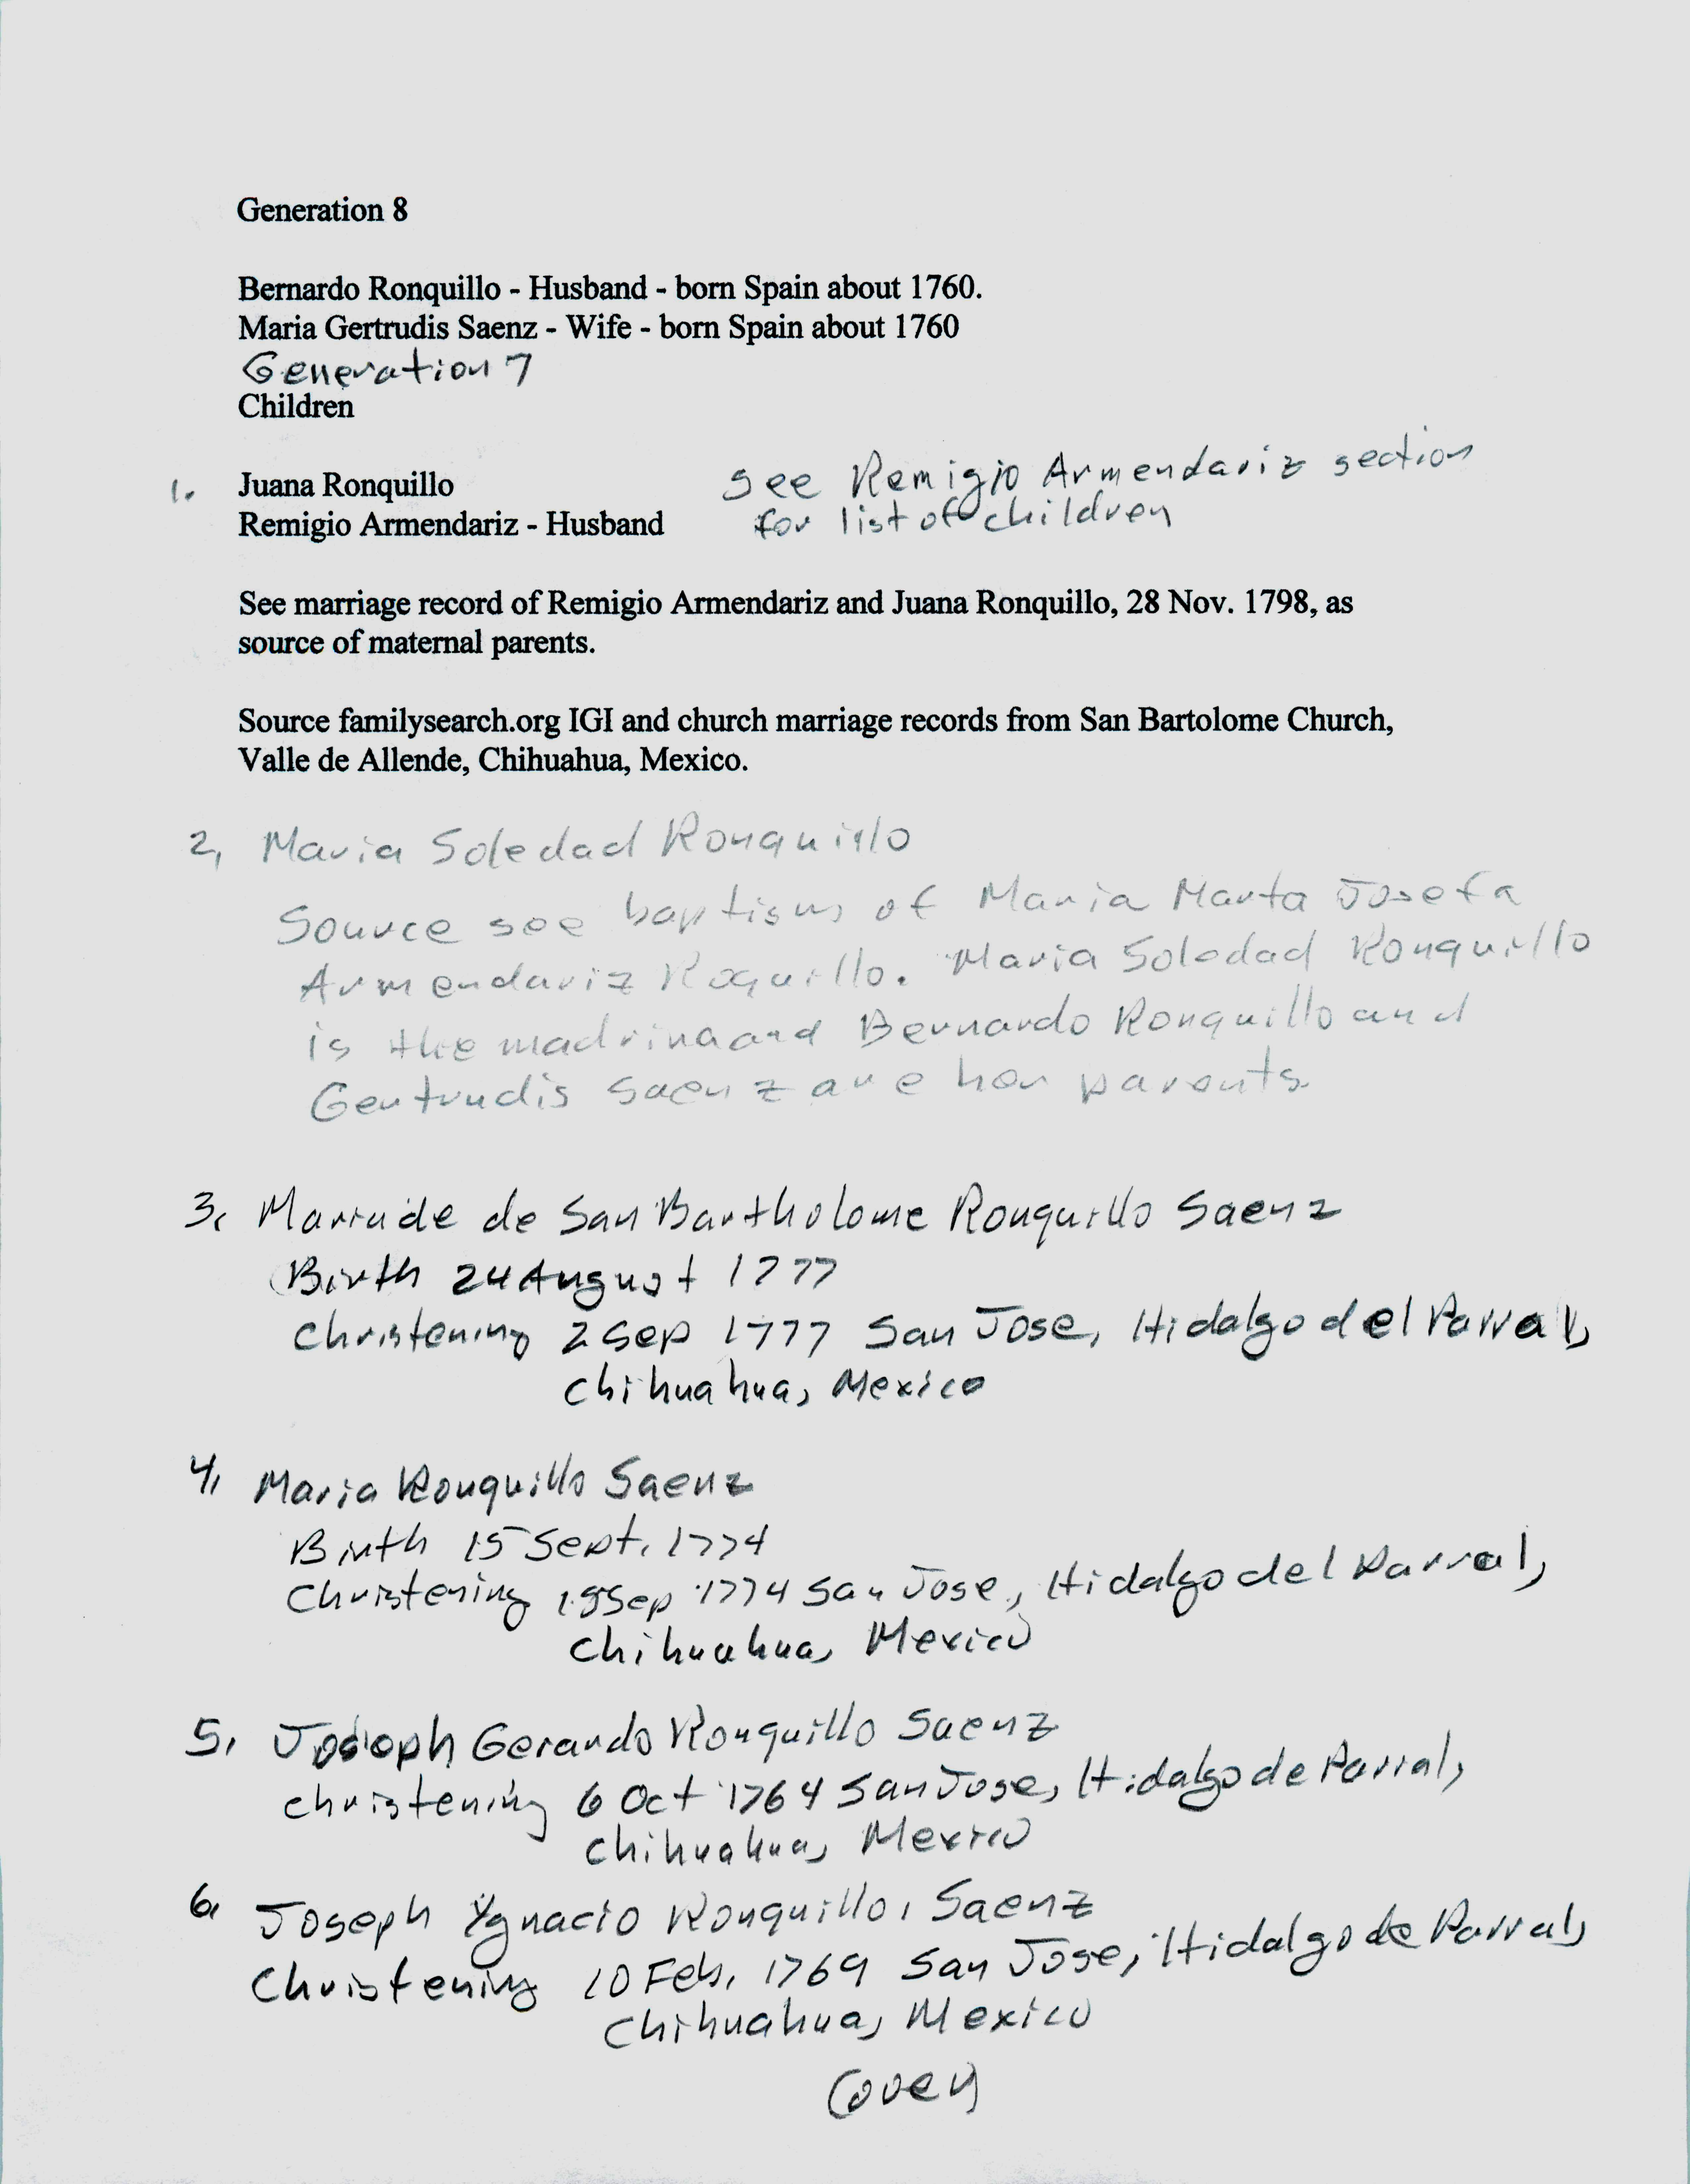 Generation 8
Bernardo Ronquillo - Husband - born Spain about 1760.
Maria Gertrudis Saenz - Wife - born Spain about 1760
Generation 7
Children
1. Juana Ronquillo see Remigio Armendariz section
Remigio Armendariz - Husband for list of children
See marriage record of Remigio Armendariz and Juana Ronquillo, 28 Nov. 1798, as
source of maternal parents.
Source familysearch.org IGI and church marriage records from San Bartolome Church,
Valle de Allende, Chihuahua, Mexico.
2, Maria Soledad Ronquillo
Source see baptism of Maria Marta Josefa
Armendariz Roquillo. Maria Soledad Ronquillo
is the madrina and Bernardo Ronquillo and
Gertrudis Saenz are her parents
3, de San Bartholome Ronquillo Saenz
Birth 24 August 1777
Christening 2 Sep 1777 San Jose, Hidalgo del Parral,
Chihuahua, Mexico
4, Maria Ronquillo Saenz
Birth 15 Sept. 1774
Christening Sep 1774 San Jose, Hidalgo del Parral,
Chihuahua, Mexico
5, Joseph Gerardo Ronquillo Saenz
christening 6 Oct 1764 San Jose, Hidalgo de Parral,
Chihuahua, Mexico
6, Joseph Ygnacio Ronquillo, Saenz
Christening 10 Feb, 1769 San Jose, Hidalgo de Parral,
Chihuahua, Mexico
(over)